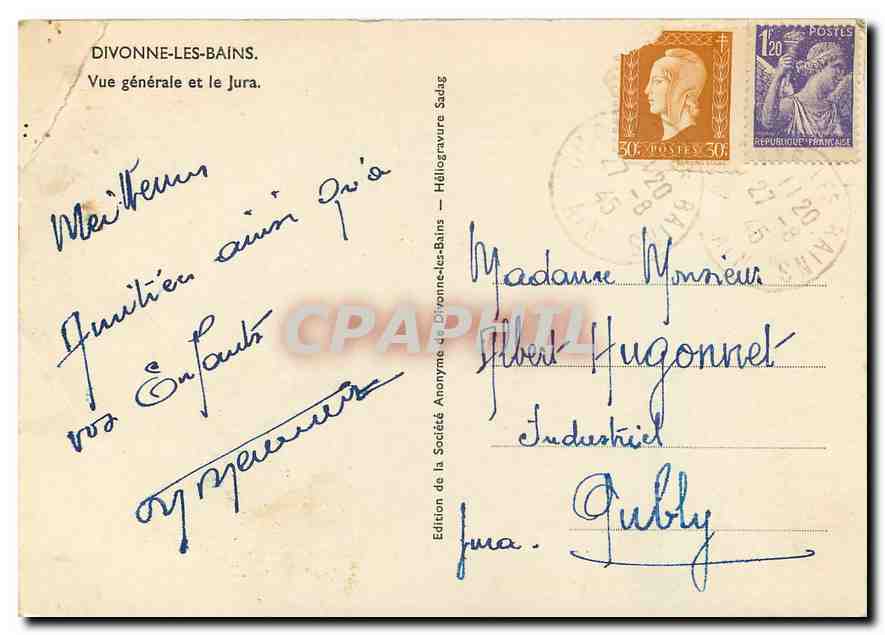 DIVONNE-LES-BAINS.
Vue générale et le Jura.
Meilleures
Amitiées ainsi qu'à
vos Enfants
Edition de la Société Anonyme de Divonne-les-Bains — Héliogravure Sadag
30c POSTES 30c
1F20 POSTES
REPUBLIQUE FRANÇAISE
11 20
27 -8
45
LES BAINS
AIN
Madame Monsieur
Albert Hugonnet
Industriel
Publy
Jura.
CPAPHIL